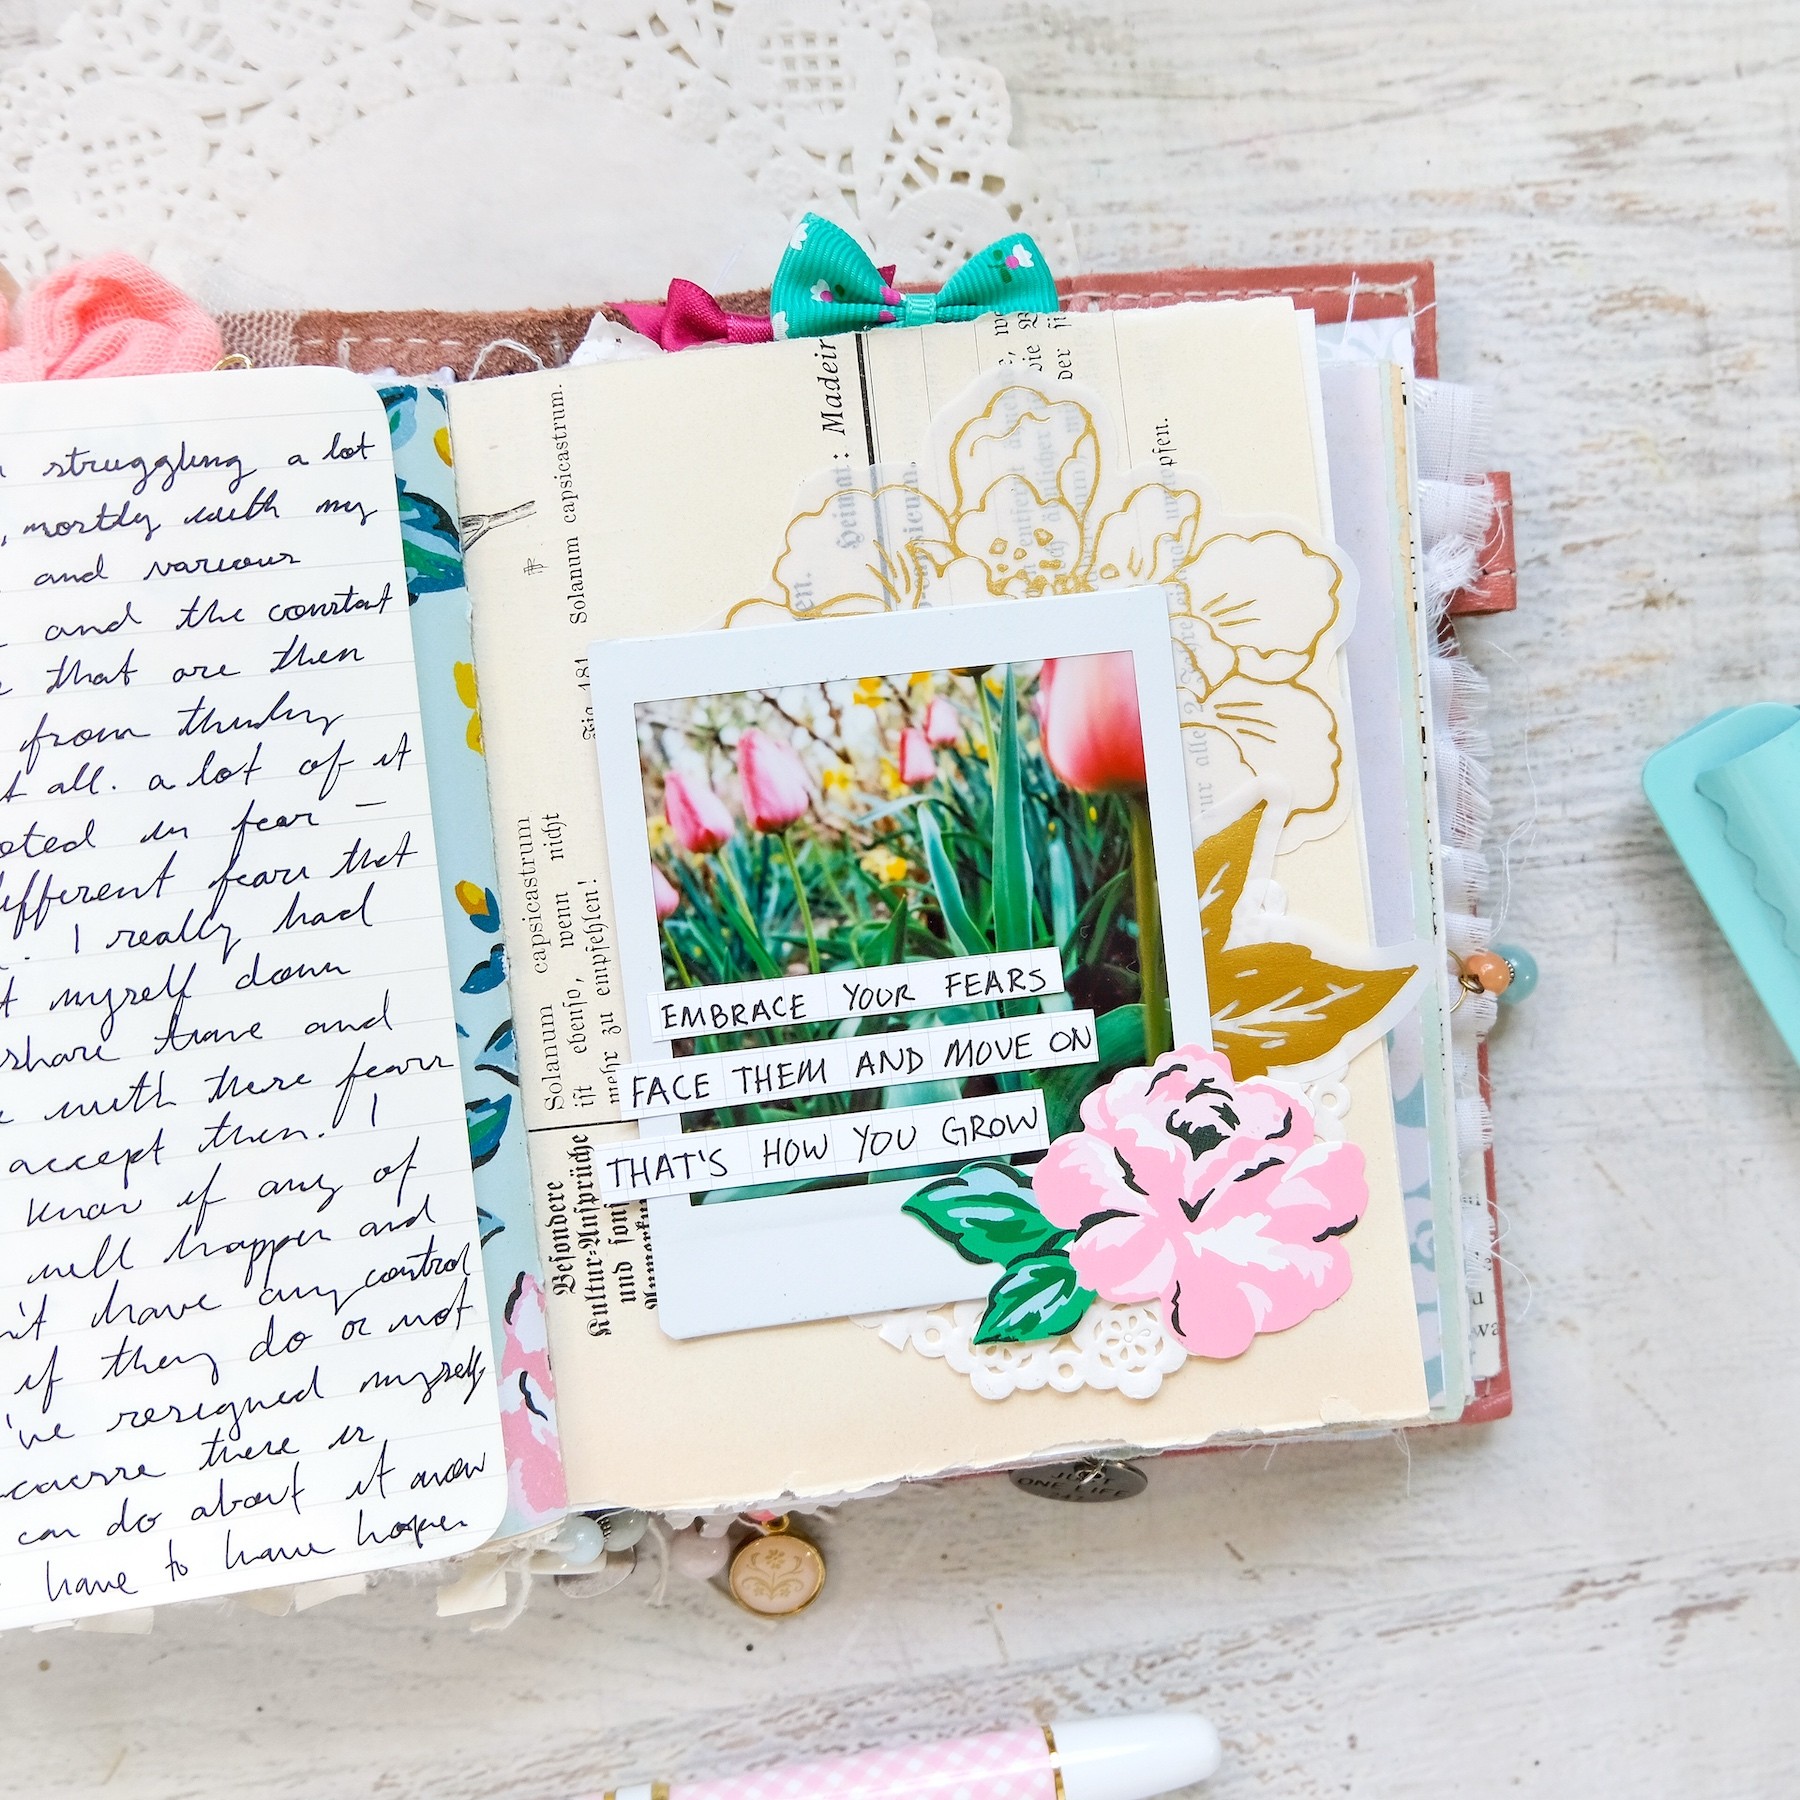 struggling a lot
, mostly with my
and various
and the constant
that are then
from thinking
t all. a lot of it
oted in fear –
different fears that
. I really had
t myself down
share time and
with these fears
accept them. I
know if any of
will happen and
n't have any control
if they do or not
've resigned myself
there is
can do about it now
have to have hope
Solanum capsicastrum.
Fig. 181
: Madeir
Heimat
Solanum capsicastrum
iſt ebenſo, wenn nicht
mehr zu empfehlen!
Beſondere
Kultur-Anſprüche
und ſonſ
der
EMBRACE YOUR FEARS
FACE THEM AND MOVE ON
THAT'S HOW YOU GROW
JUST
ONE LIFE